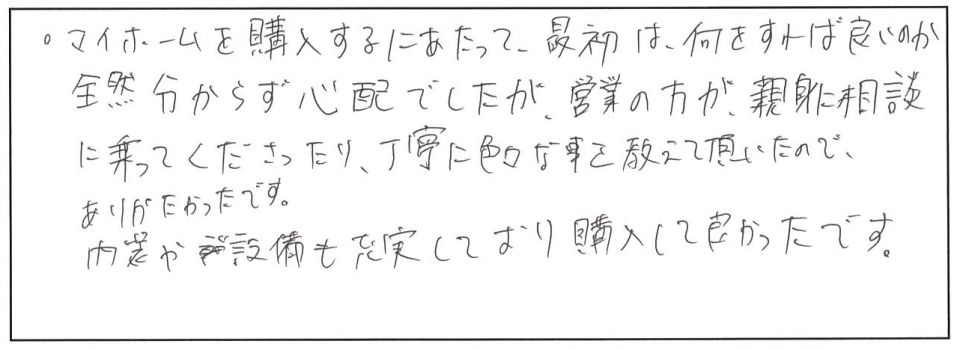 。マイホームを購入するにあたって、最初は、何をすれば良いのか
全然分からず心配でしたが、営業の方が、親身に相談
に乗ってくださったり、丁寧に色々な事を教えて頂いたので、
ありがたかったです。
内装や設備も充実しており購入して良かったです。